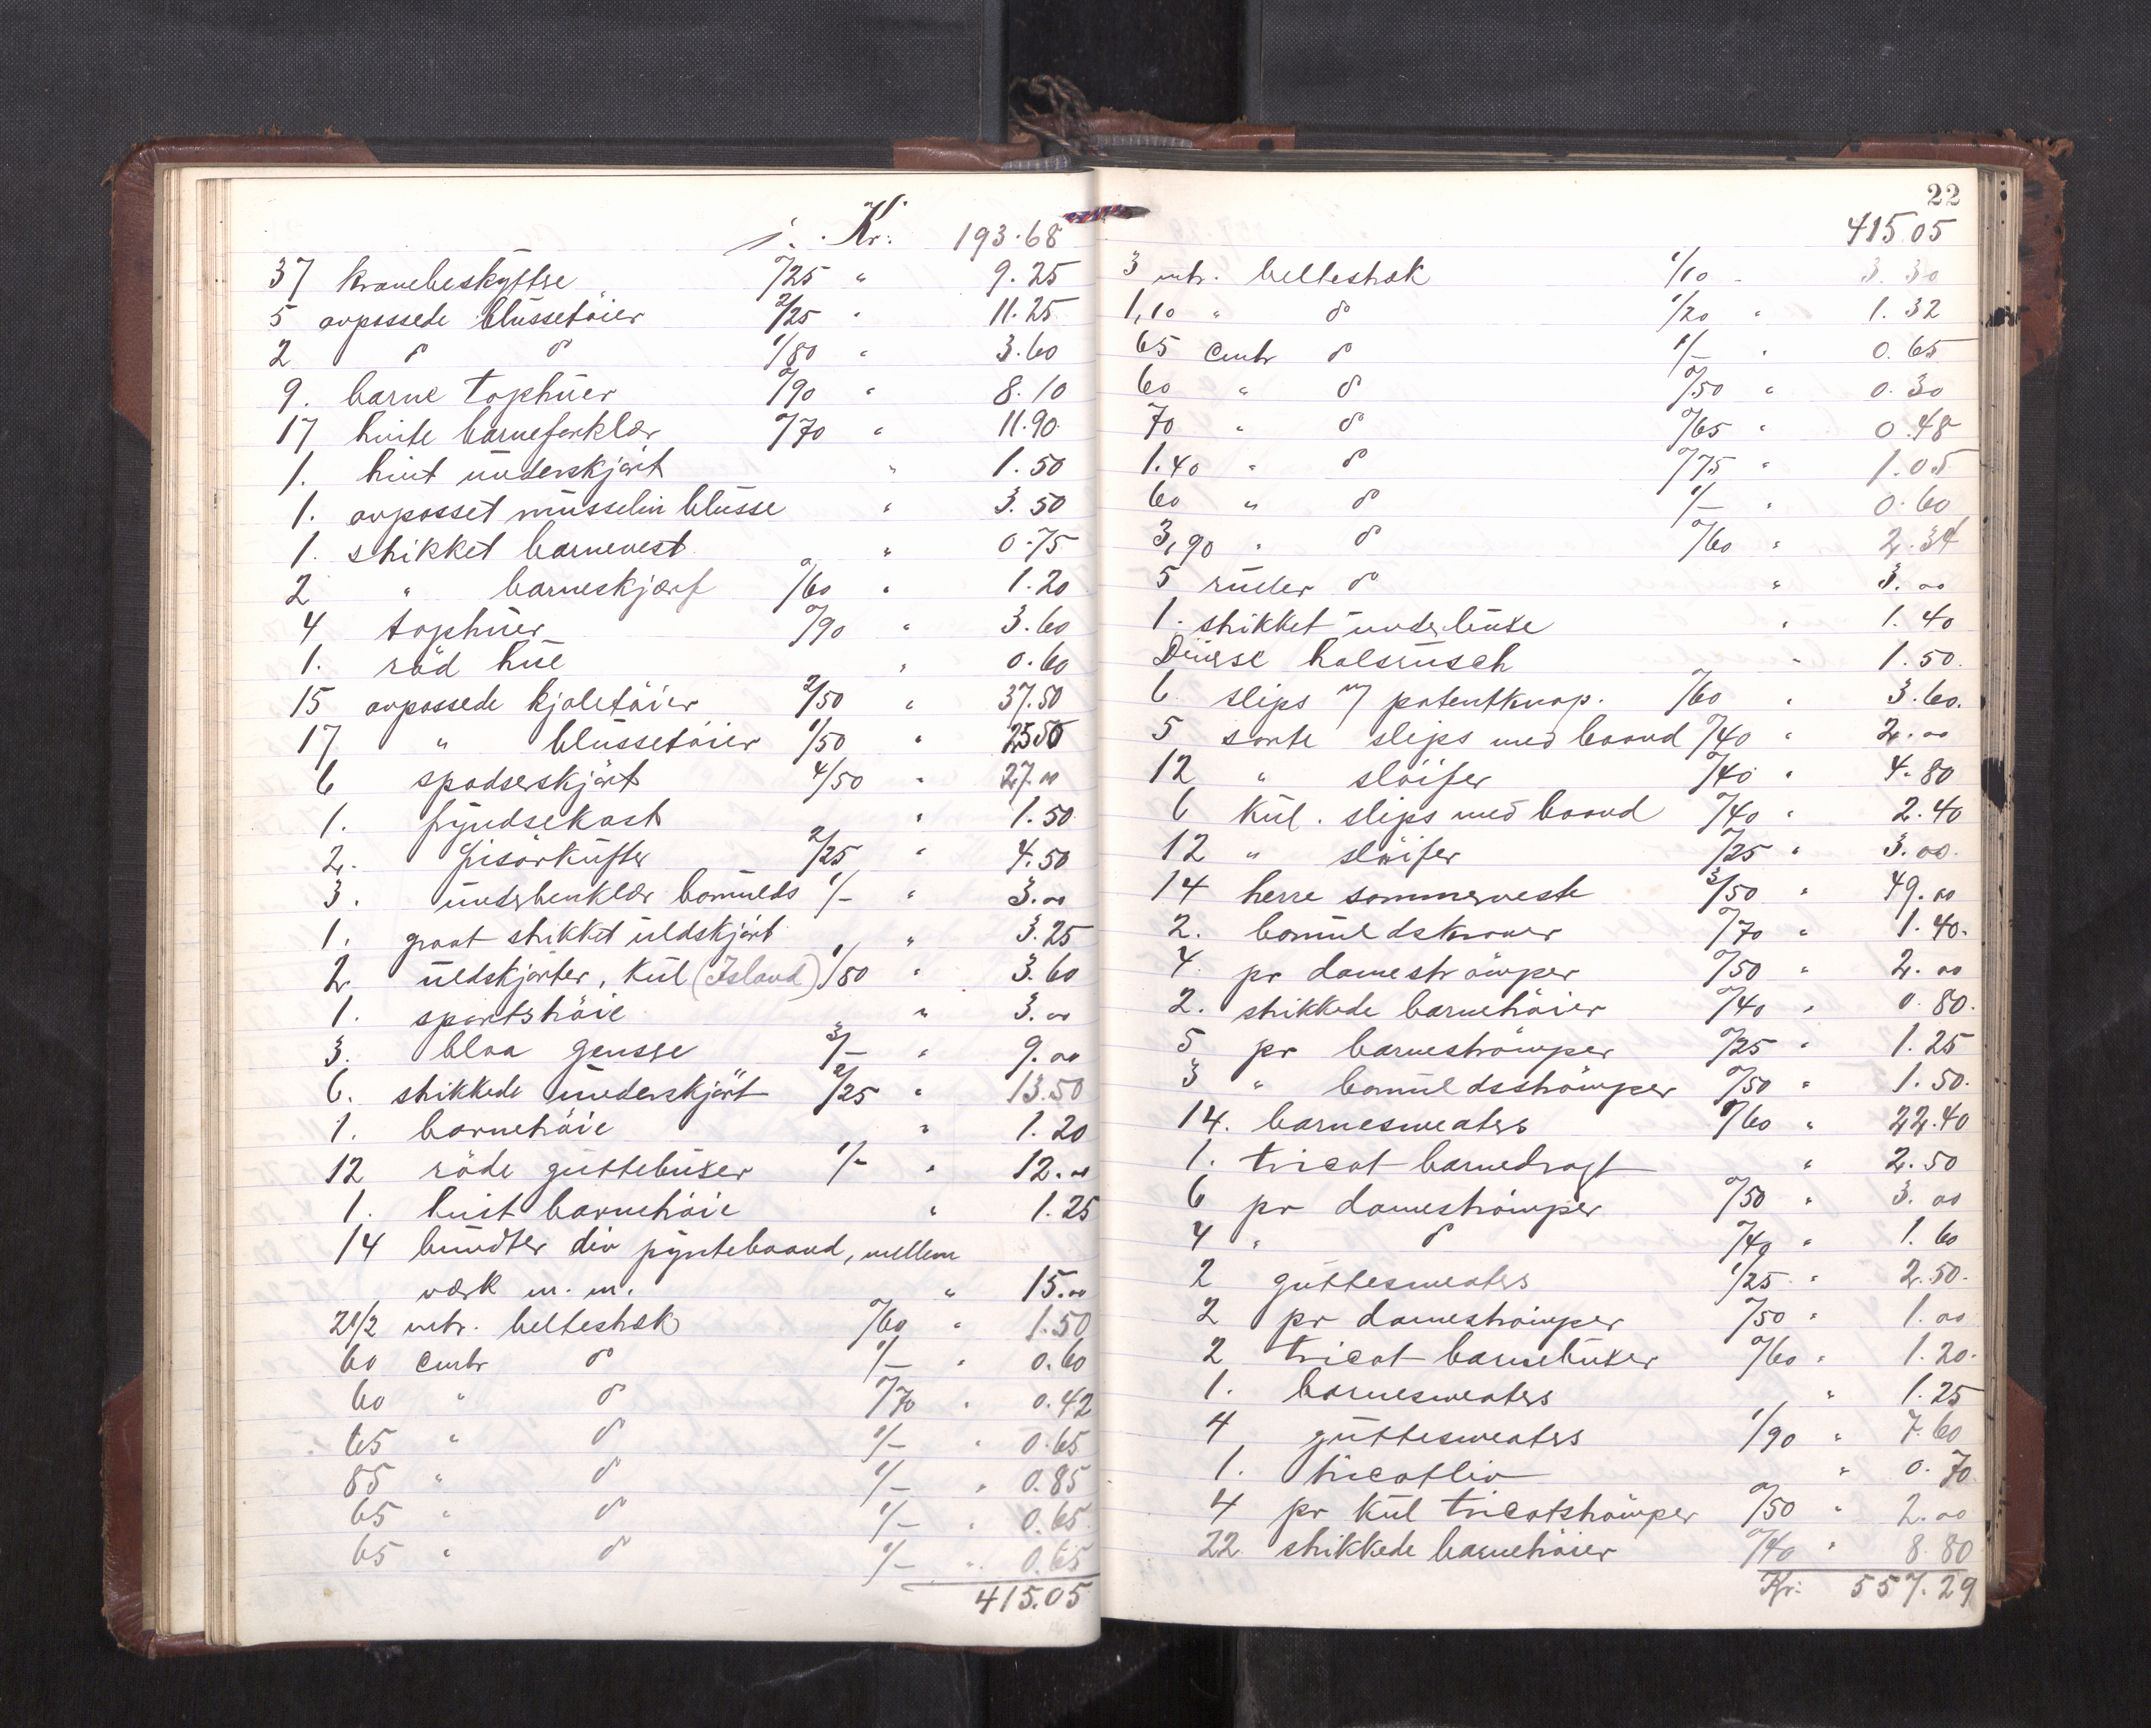 i. Kr: 193.68
37 kravebeskyttse 0/25 " 9.25
5 avpassede blusetöier 2/25 " 11.25
2 do do 1/80 " 3.60
9. barne tophuer 0/90 " 8.10
17 hvite barneforklær 0/70 " 11.90
1. hvit underskjört " 1.50
1. avpasset musselin bluse " 3.50
1. strikket barnevest " 0.75
2 " barneskjærf 0/60 " 1.20
4 tophuer 0/90 " 3.60
1. röd hue " 0.60
15 avpassede kjoletöier 2/50 " 37.50
17 " blussetöier 1/50 " 25.50
6 spadserskjört 4/50 " 27.00
1. fryndsekast " 1.50
2. frisörkufter 2/25 " 4.50
3. underbenklær bomulds 1/- " 3.00
1. graat strikket uldskjört " 3.25
2 uldskjörter, kul (Island) 1/80 " 3.60
1. sportströie " 3.00
3. blaa gensse 3/- " 9.00
6. strikkede underskjört 2/25 " 13.50
1. barnetröie " 1.20
12 röde guttebuxer 1/- " 12.00
1. hvit barnetröie " 1.25
14 bundter div pyntebaand, mellem
værk m. m. " 15.00
2 1/2 mtr. beltestræk 0/60 " 1.50
60 cmtr do 1/- " 0.60
60 " do 0/70 " 0.42
65 " do 1/- " 0.65
85 " do 1/- " 0.85
65 " do 1/- " 0.65
65 " do 1/- " 0.65
415.05
22
415.05
3 mtr. beltestræk 1/10 " 3.30
1,10 " do 1/20 " 1.32
65 cmtr do 1/- " 0.65
60 " do 0/50 " 0.30
70 " do 0/65 " 0.48
1.40 " do 0/75 " 1.05
60 " do 1/- " 0.60
3,90 " do 0/60 " 2.34
5 ruller do " 3.00
1. strikket underbuxe " 1.40
Diverse halsrusch " 1.50
6 slips m/ patentknap. 0/60 " 3.60.
5 sorte slips med baand 0/40 " 2.00
12 " slöifer 0/40 " 4.80
6 kul. slips med baand 0/40 " 2.40
12 " slöifer 0/25 " 3.00
14 herre sommerveste 3/50 " 49.00
2. bomuldskraver 0/70 " 1.40.
4 pr dameströmper 0/50 " 2.00
2. strikkede barnetröier 0/40 " 0.80.
5 pr barneströmper 0/25 " 1.25
3 " bomuldsströmper 0/50 " 1.50.
14. barnesweaters 1/60 " 22.40
1. tricot barnedragt " 2.50
6 pr dameströmper 0/50 " 3.00
4 " do 0/40 " 1.60
2 guttesweaters 1/25 " 2.50.
2 pr dameströmper 0/50 " 1.00
2 tricot barnebuxer 0/60 " 1.20.
1. barnesweaters " 1.25
4 guttesweaters 1/90 " 7.60
1. tricotliv " 0.70
4 pr kul tricotströmper 0/50 " 2.00
22 strikkede barnetröier 0/40 " 8.80
Kr: 557.29